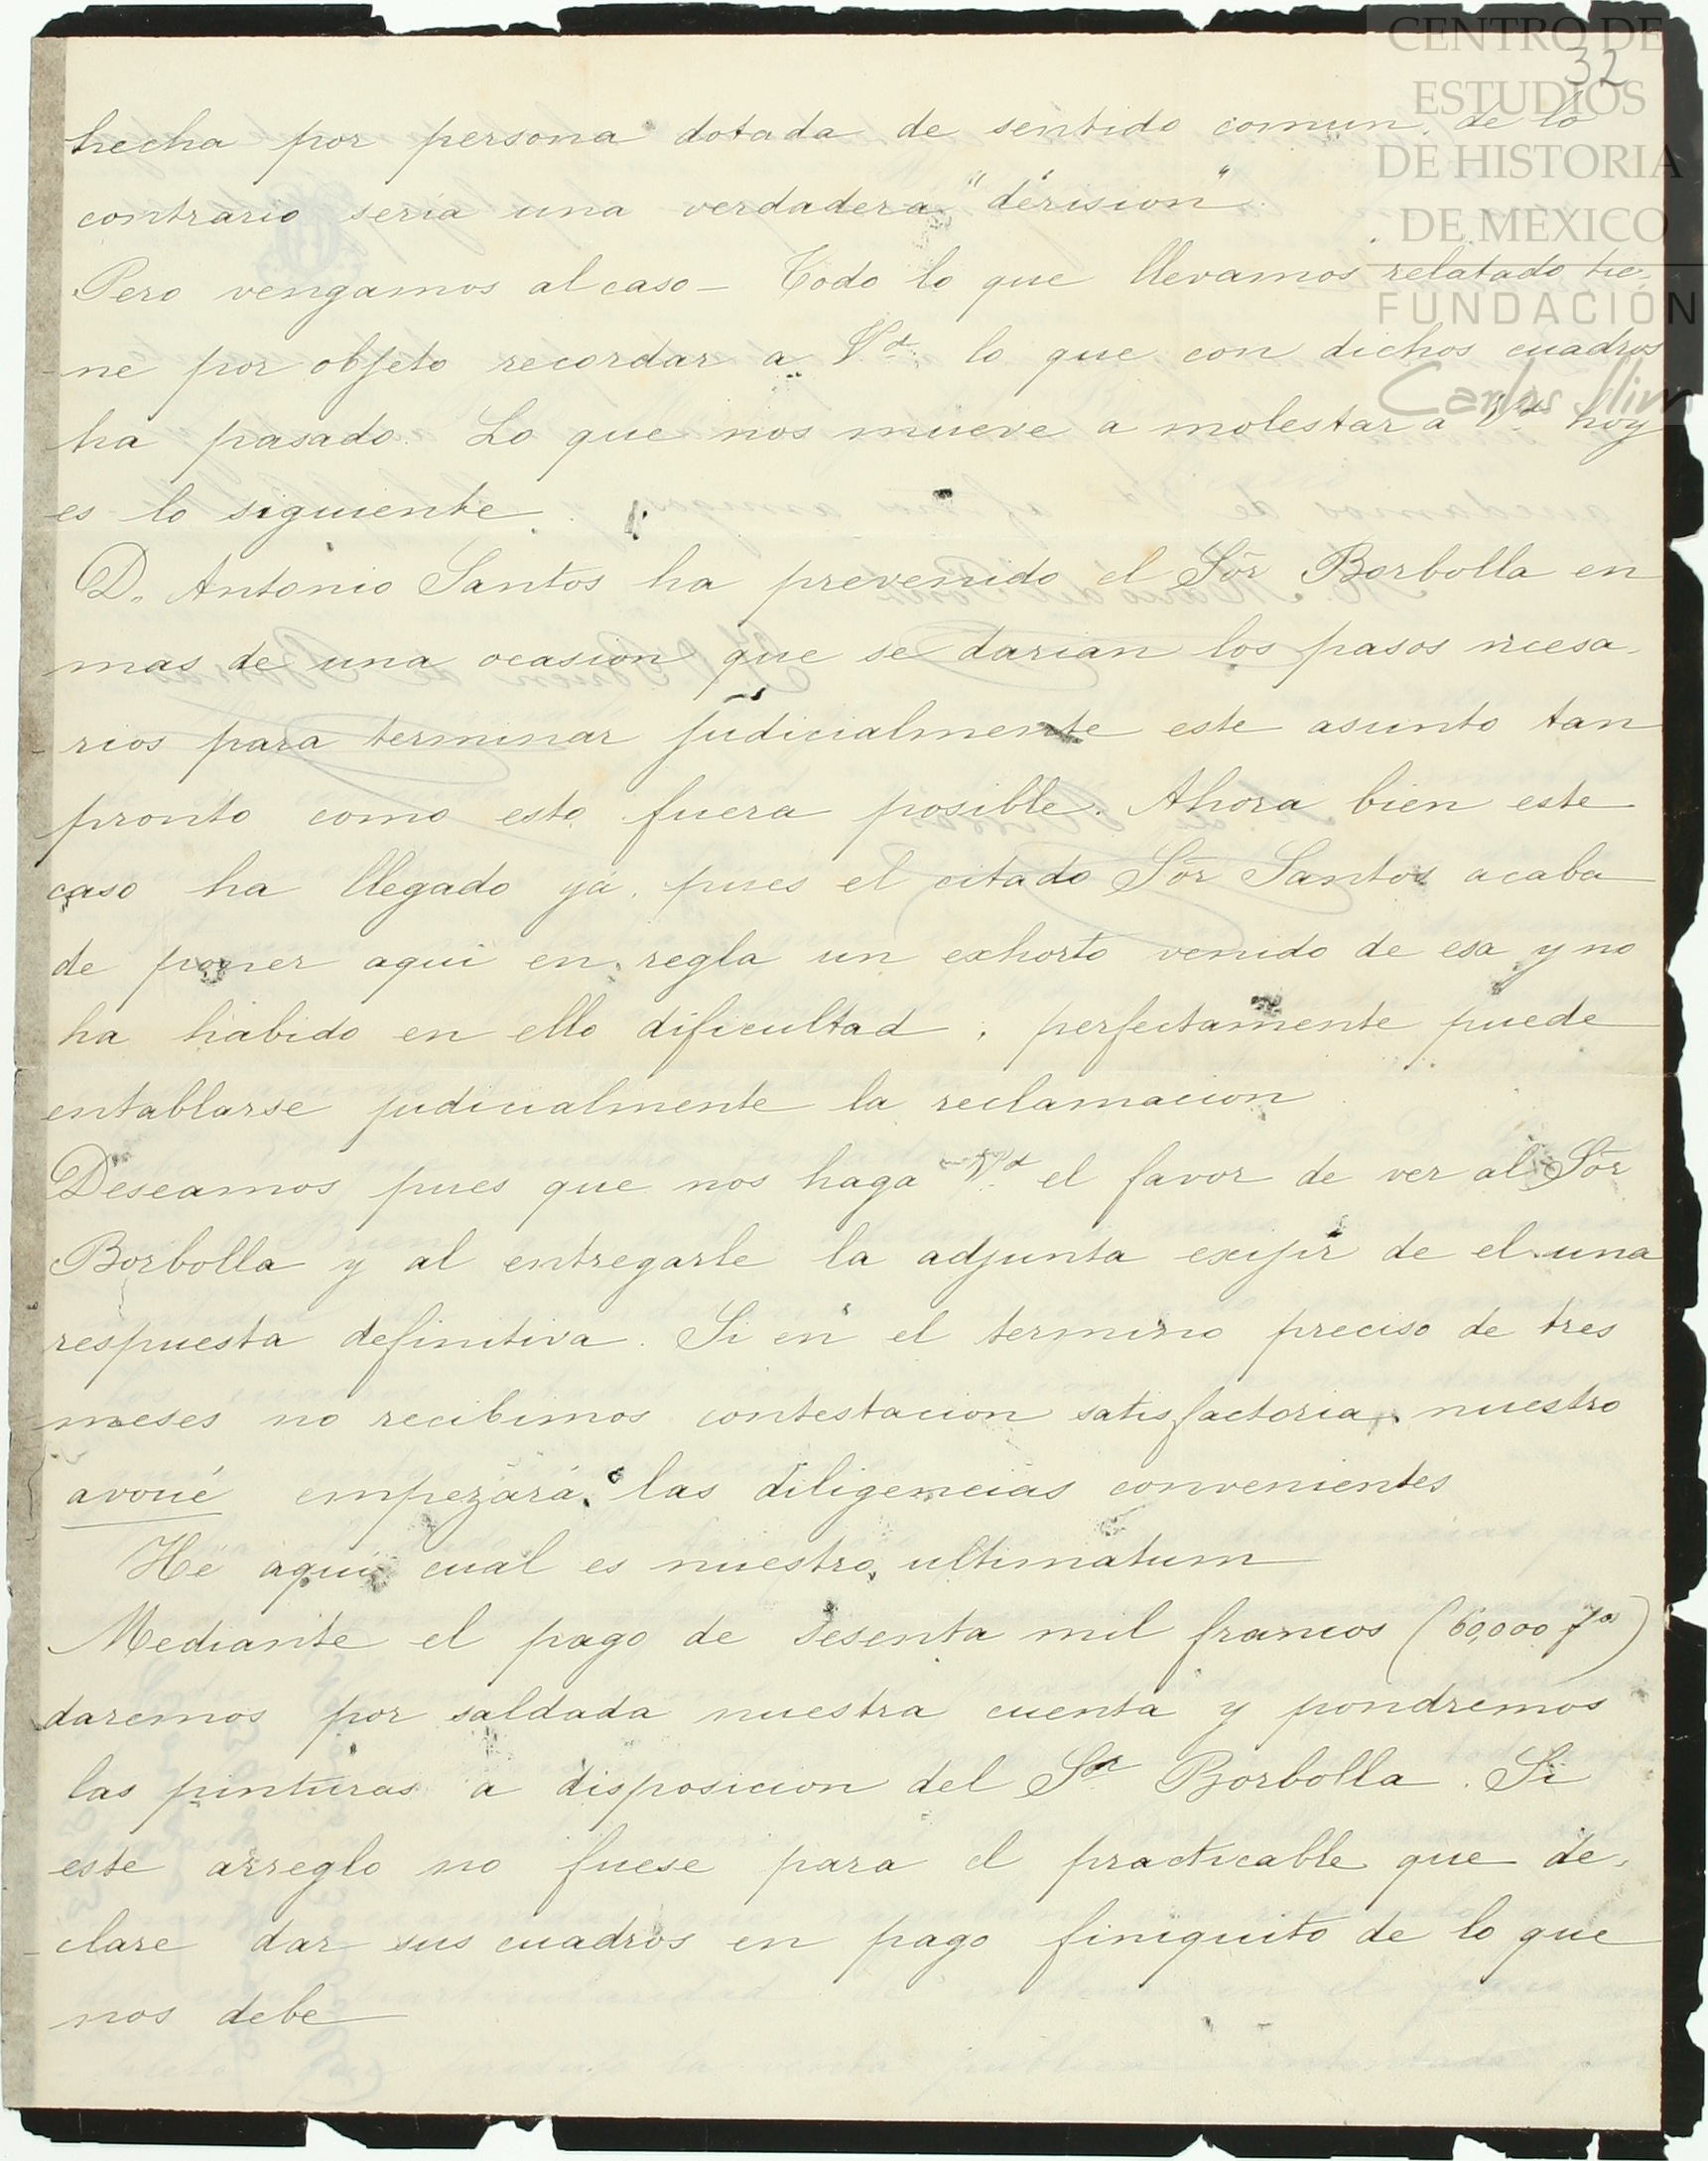 CENTRO DE
ESTUDIOS
DE HISTORIA
DE MEXICO
FUNDACIÓN
Carlos Slim
32
hecha por persona dotada de sentido comun, de lo
contrario seria una verdadera "derision".
Pero vengamos al caso - Todo lo que llevamos relatado tie-
ne por objeto recordar a Vd. lo que con dichos cuadros
ha pasado. Lo que nos mueve a molestar a Vd hoy
es lo siguiente.
D. Antonio Santos ha prevenido el Sõr Borbolla en
mas de una ocasion que se darian los pasos ncesa-
rios para terminar judicialmente este asunto tan
pronto como esto fuera posible. Ahora bien este
caso ha llegado ya, pues el citado Sõr Santos acaba
de poner aqui en regla un exhorto venido de esa y no
ha habido en ello dificultad, perfectamente puede
entablarse judicialmente la reclamacion
Deseamos pues que nos haga Vd el favor de ver al Sõr
Borbolla y al entregarle la adjunta exijir de el una
respuesta definitiva. Si en el termino preciso de tres
meses no recibimos contestacion satisfactoria, nuestro
avoué empezará las diligencias convenientes
Hé aqui cual es nuestro ultimatum
Mediante el pago de sesenta mil francos (60,000 fs)
daremos por saldada nuestra cuenta y pondremos
las pinturas a disposicion del Sr Borbolla. Si
este arreglo no fuese para el practicable que de-
clare dar sus cuadros en pago finiquito de lo que
nos debe